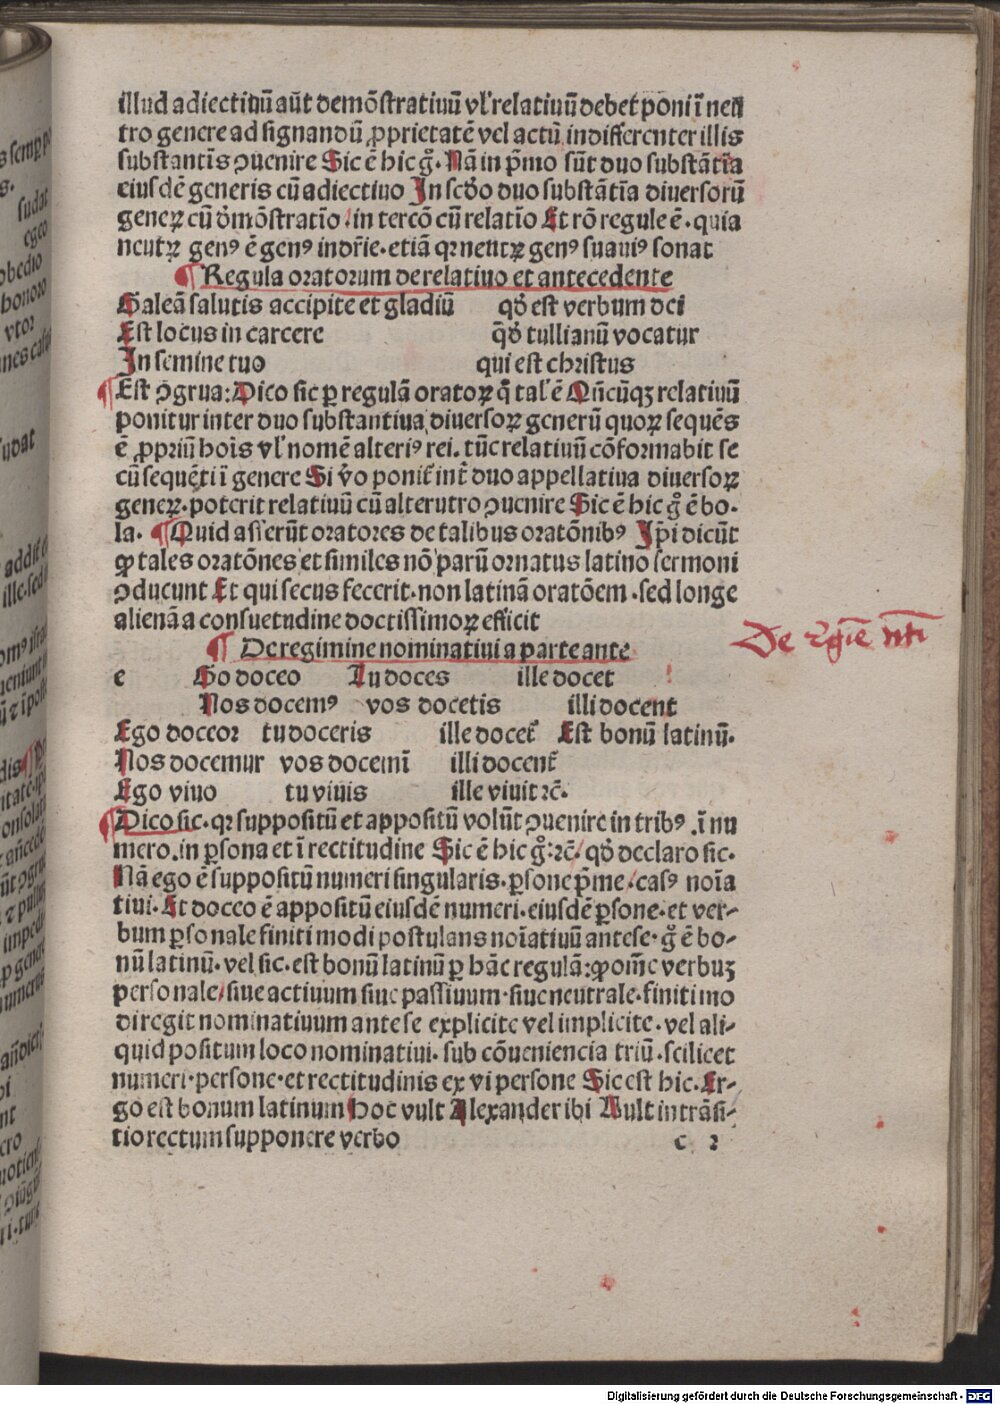 illud adiectiuū aūt demōstratiuū vl' relatiuū debet poni ī neu
tro genere ad signandū ꝓprietatē vel actū indifferenter illis
substantīs ꝯuenire Sic ē hic gͦ. Nā in pͥmo sūt duo substātīa
eiusdē generis cū adiectiuo In scd̄o duo substātīa diuersorū
geneꝝ cū dm̄ōstratīo / in tercō cū relatīo Et rō regule ē. quia
neutꝝ genꝰ ē genꝰ indr̄ie. etiā qꝛ neutꝝ genꝰ suauiꝰ sonat
¶ Regula oratorum de relatiuo et antecedente
Galeā salutis accipite et gladiū qd̄ est verbum dei
Est locus in carcere qd̄ tullianū vocatur
In semine tuo qui est christus
¶ Est ꝯgrua: Dico sic ꝑ regulā oratoꝝ q̄ tal' ē Qn̄cūqꝫ relatiuū
ponitur inter duo substantiua diuersoꝝ generū quoꝝ sequēs
ē ꝓpriū hoīs vl' nomē alteriꝰ rei. tūc relatiuū cōformabit se
cū sequēti ī genere Si v̄o ponit̄ int̄ duo appellatiua diuersoꝝ
geneꝝ. poterit relatiuū cū alterutro ꝯuenire Sic ē hic gͦ ē bo-
la. ¶ Quid asserūt oratores de talibus oratōnibꝰ Ip̄i dicūt
ꝙ tales oratōnes et similes nō parū ornatus latino sermoni
ꝯducunt Et qui secus fecerit. non latinā oratōem. sed longe
alienā a consuetudine doctissimoꝝ efficit
De regīe ntī
¶ De regimine nominatiui a parte ante
e Go doceo Tu doces ille docet
Nos docemꝰ vos docetis illi docent
Ego doceor tu doceris ille docet̄ Est bonū latinū.
Nos docemur vos docemī illi docent̄
Ego viuo tu viuis ille viuit ꝛc̄.
¶ Dico sic. qꝛ suppositū et appositū volūt ꝯuenire in tribꝰ. ī nu
mero. in ꝑsona et ī rectitudine Sic ē hic gͦ: ꝛc̄ / qd̄ declaro sic.
Nā ego ē suppositū numeri singularis. ꝑsone pͥme / casꝰ noīa
tiui. Et doceo ē appositū eiusdē numeri. eiusdē ꝑsone. et ver-
bum ꝑsonale finiti modi postulans noīatiuū ante se. gͦ ē bo-
nū latinū. vel sic. est bonū latinū ꝑ hāc regulā: ꝙ om̄e verbuꝫ
personale / siue actiuum siue passiuum. siue neutrale. finiti mo
di regit nominatiuum ante se explicite vel implicite. vel ali-
quid positum loco nominatiui. sub cōueniencia triū. scilicet
numeri. persone. et rectitudinis ex vi persone Sic est hic. Er-
go est bonum latinum Hoc vult Alexander ibi Vult intrāsi-
tio rectum supponere verbo
c 2
Digitalisierung gefördert durch die Deutsche Forschungsgemeinschaft - DFG